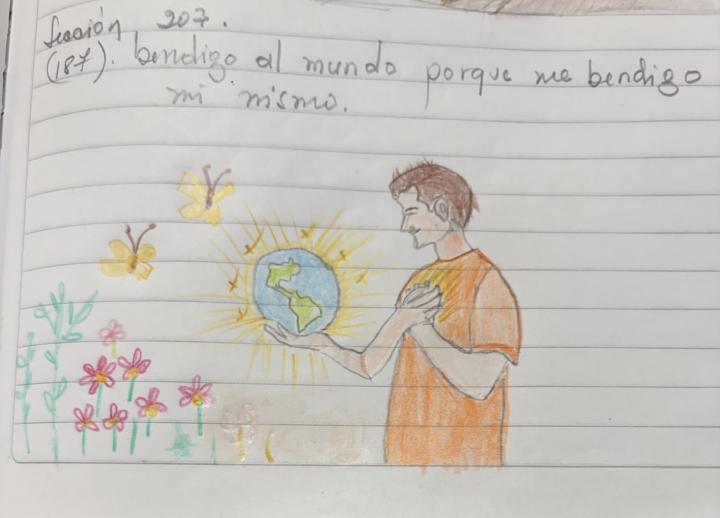 Lección 207.
(187). bendigo al mundo porque me bendigo
mi mismo.